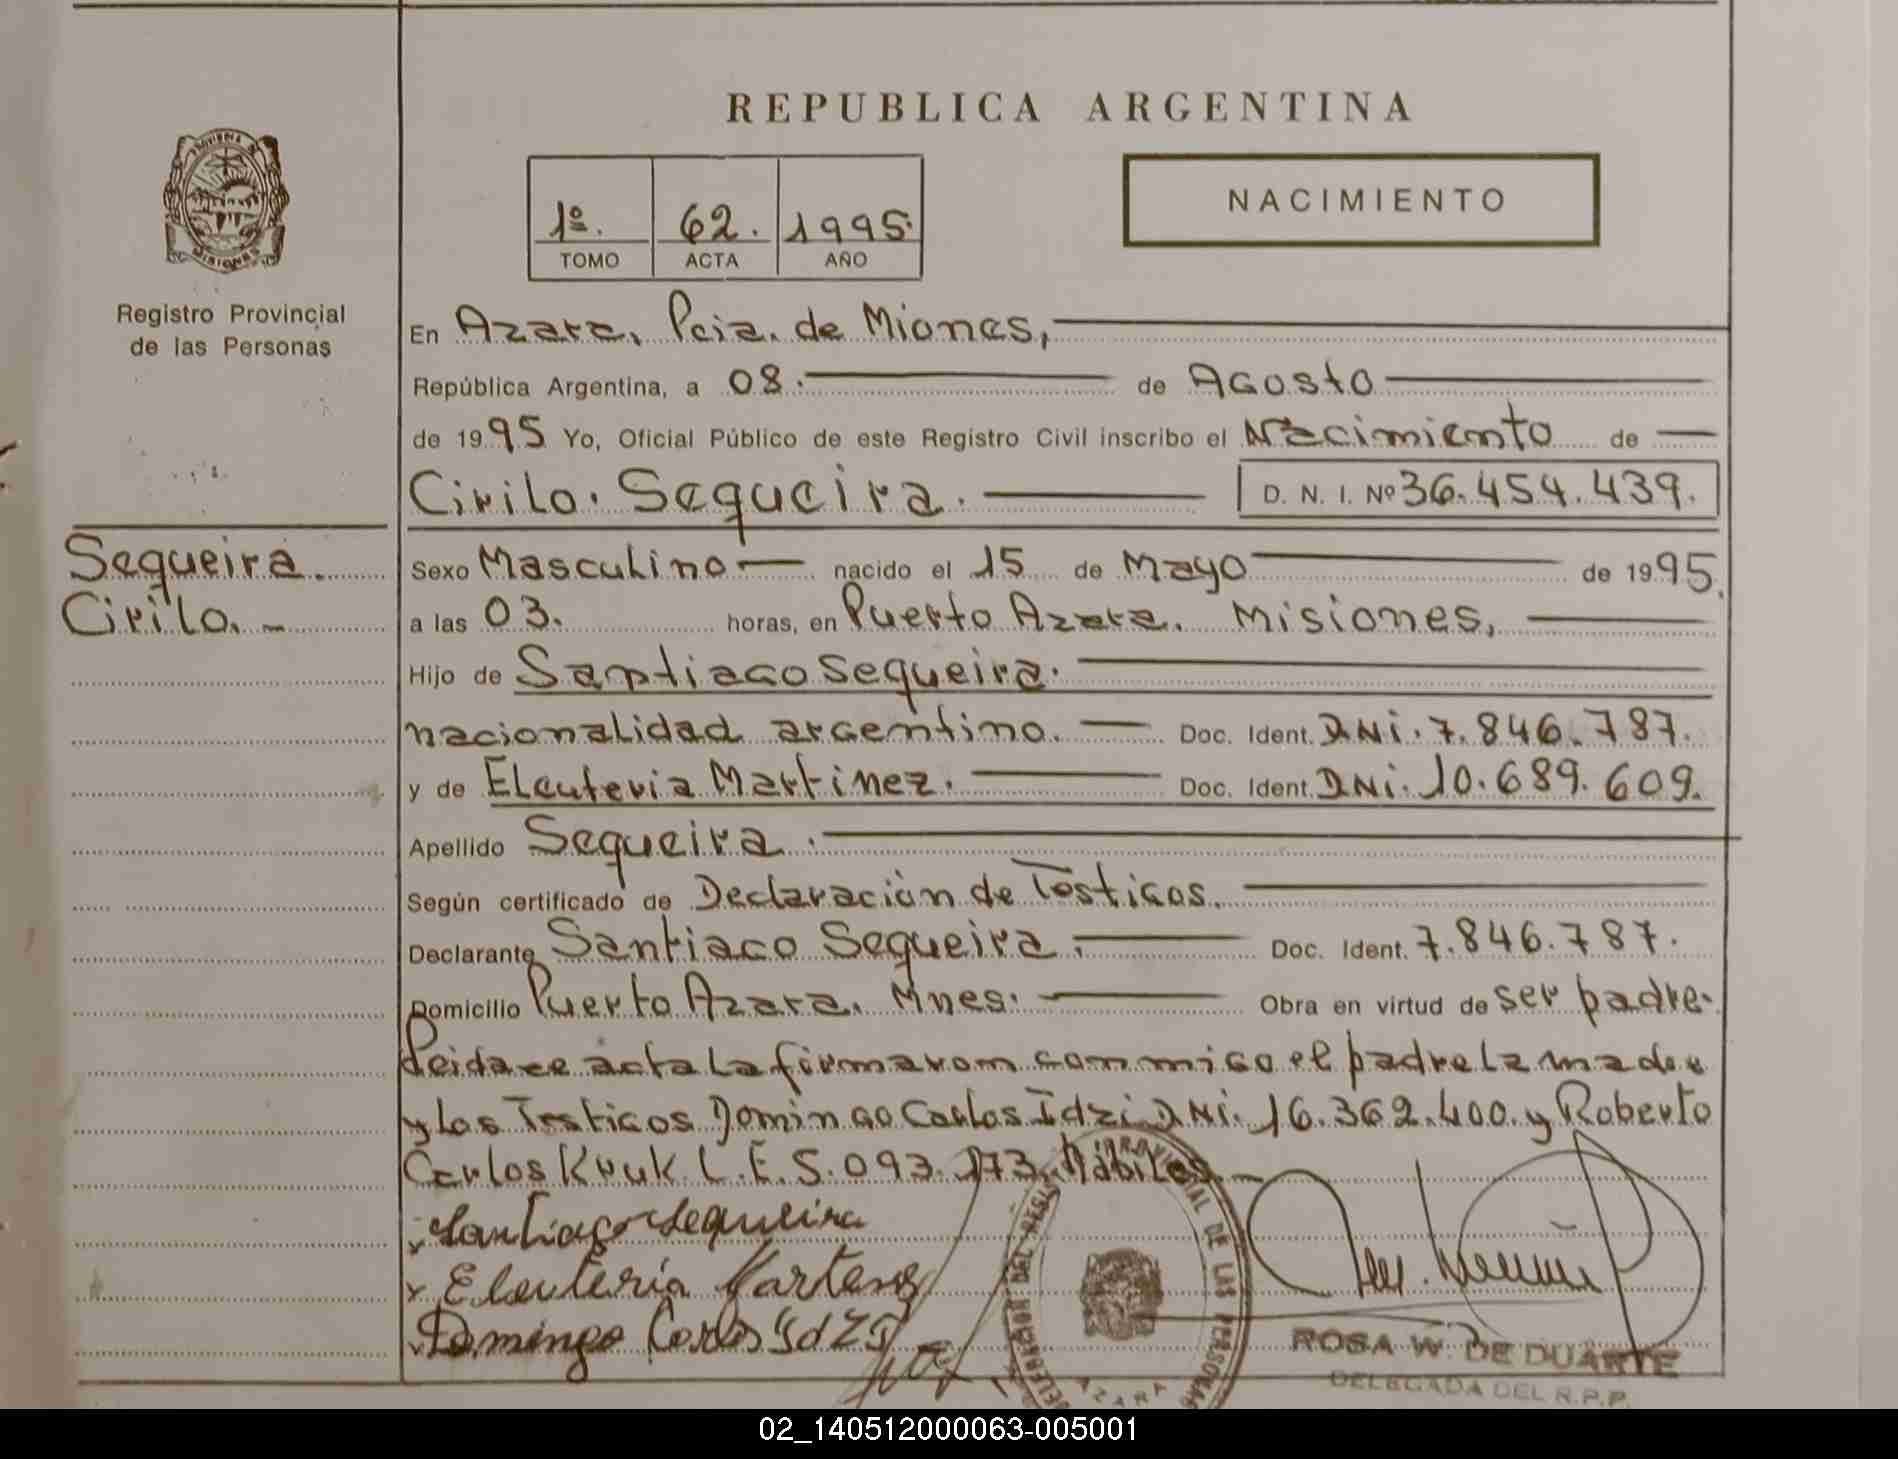 REPUBLICA ARGENTINA
PROVINCIA DE MISIONES
Registro Provincial
de las Personas
1º. 62. 1995.
TOMO ACTA AÑO
NACIMIENTO
En Azara, Pcia. de Miones,
República Argentina, a 08. de Agosto
de 1995 Yo, Oficial Público de este Registro Civil inscribo el Nacimiento de
Cirilo. Sequeira. D. N. I. Nº 36.454.439.
Sequeira.
Cirilo. -
Sexo Masculino nacido el 15 de Mayo de 1995.
a las 03. horas, en Puerto Azara. Misiones,
Hijo de Santiago Sequeira.
nacionalidad argentino. Doc. Ident. DNi. 7.846.787.
y de Eleuteria Martinez. Doc. Ident. DNi. 10.689.609.
Apellido Sequeira.
Según certificado de Declaración de Testigos.
Declarante Santiago Sequeira. Doc. Ident. 7.846.787.
Domicilio Puerto Azara. Mnes. Obra en virtud de ser padre.
Leida ee acta la firmaron conmigo el padre la madre
y los Testigos Domingo Carlos Idzi DNi. 16.362.400. y Roberto
Carlos Kruk L.E. 5.093.173. Hábiles.
Santiago Sequeira
Eleuteria
Domingo Carlos Idzi
DE LAS PERSONAS
AZARA
ROSA W. DE DUARTE
DELEGADA DEL R.P.P.
02_140512000063-005001